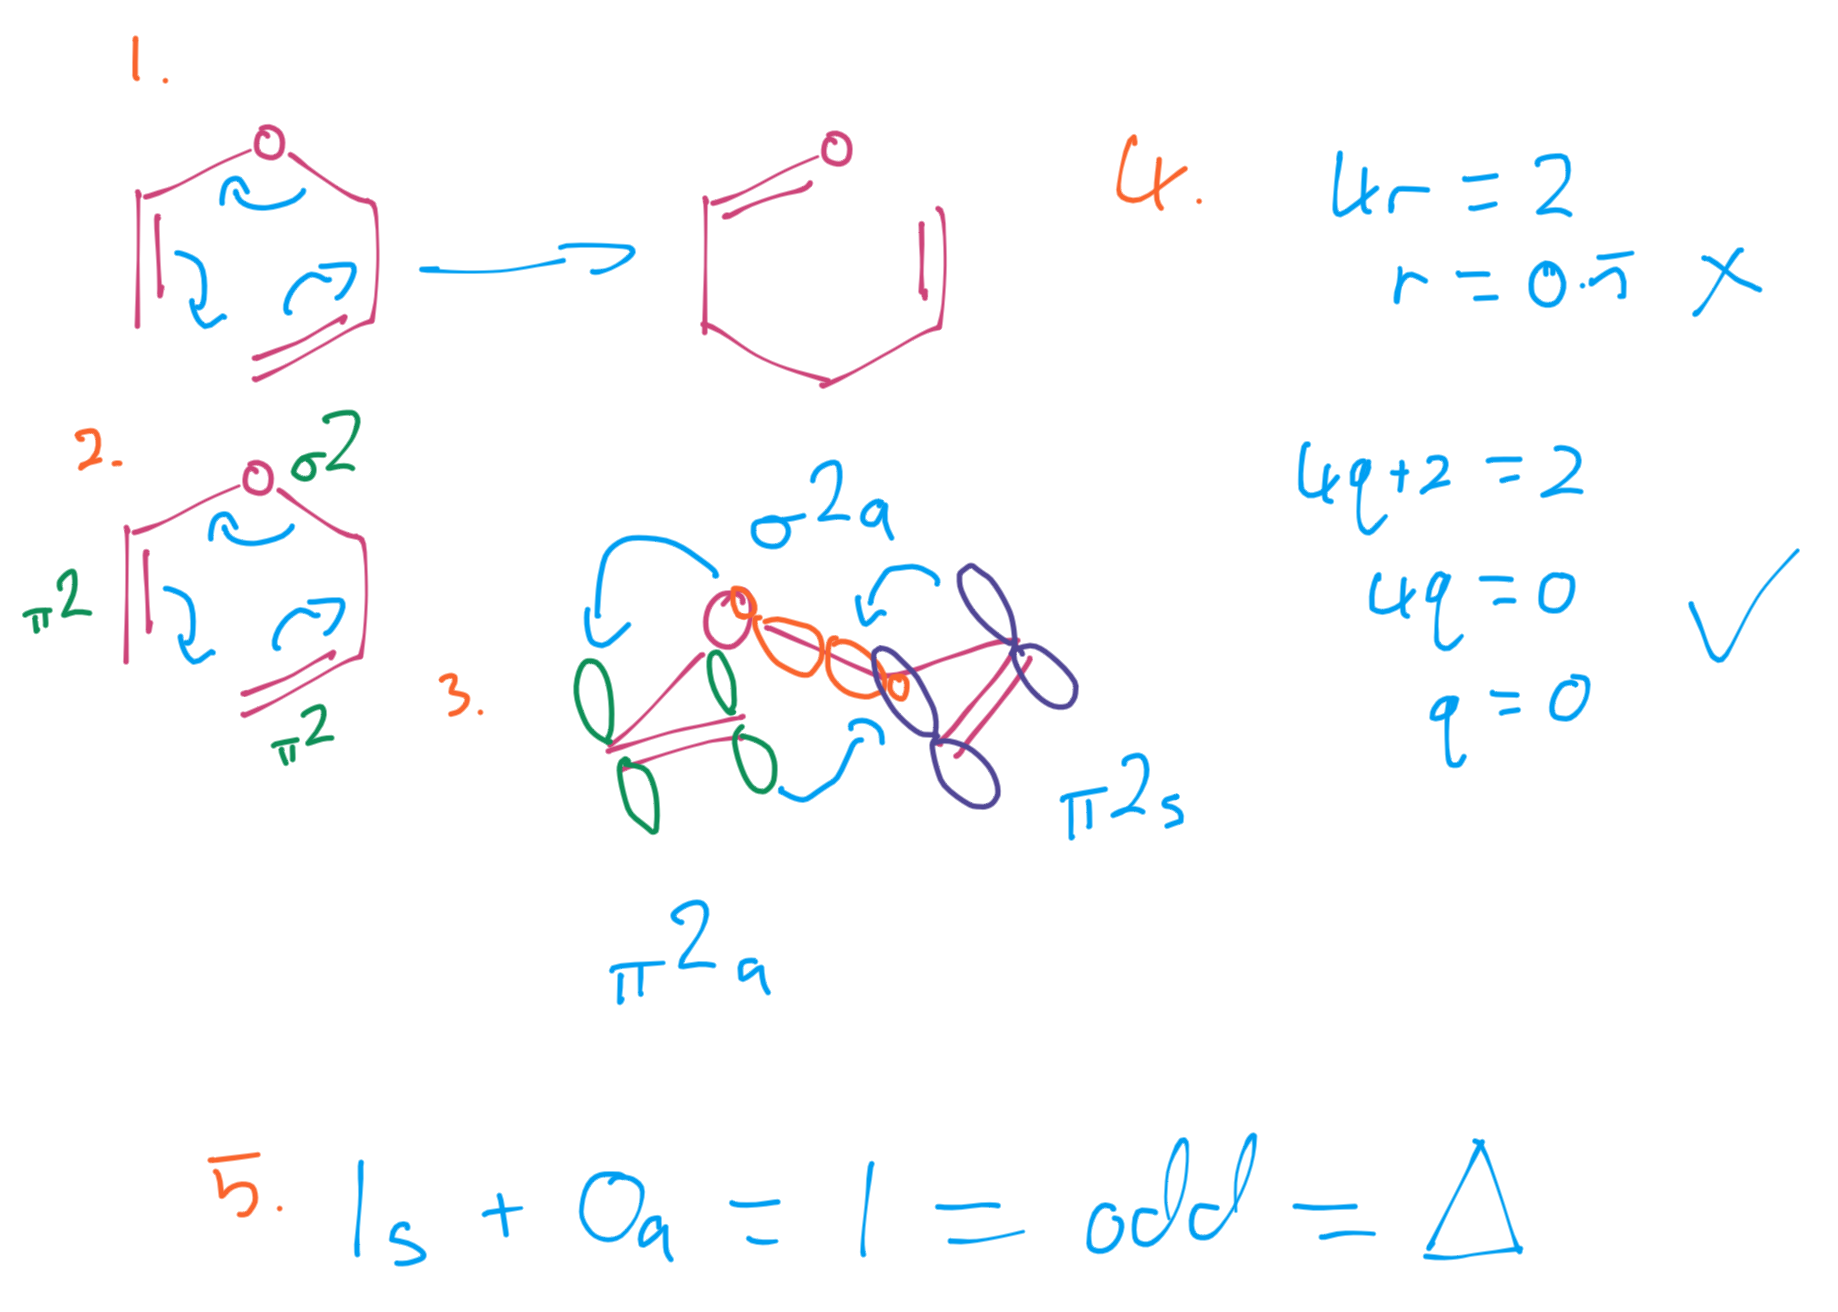 1.
O
O
2.
O
σ2
π2
π2
3.
O
σ2a
π2s
π2a
4.
4r = 2
r = 0.5 ×
4q+2 = 2
4q = 0 ✓
q = 0
5. 1s + 0a = 1 = odd = Δ